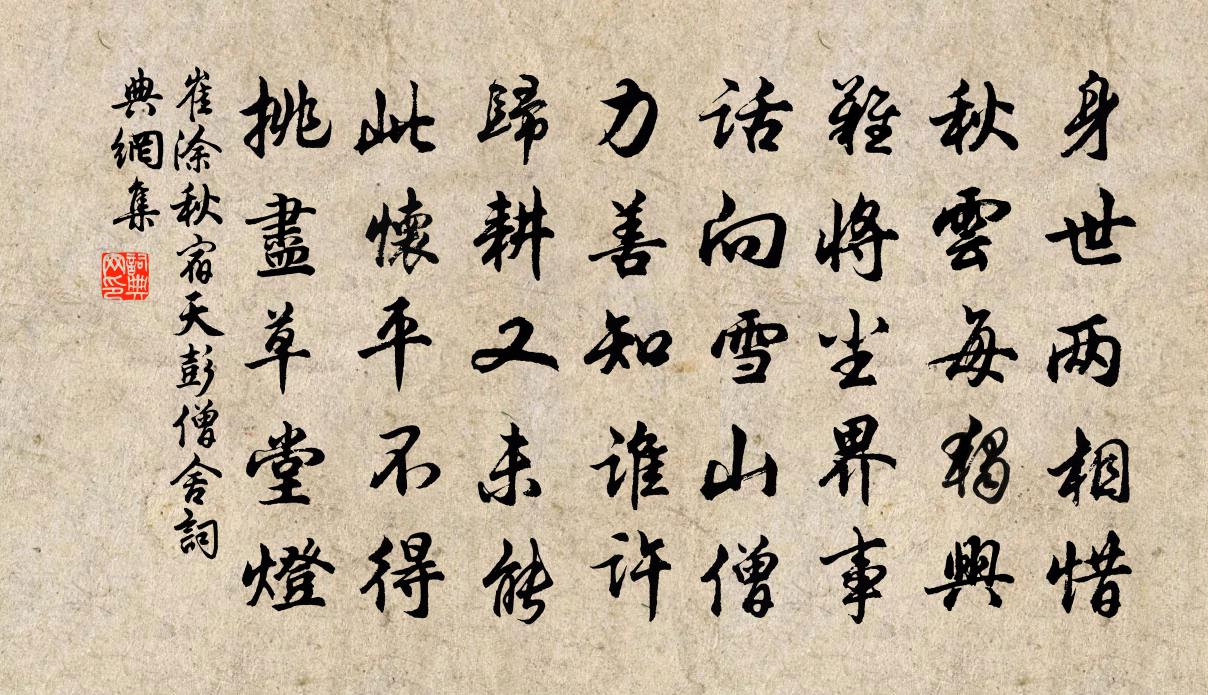 身世两相惜
秋雲每獨興
難將塵界事
話向雪山僧
力善知誰許
歸耕又未能
此懷平不得
挑盡草堂燈
崔涂秋宿天彭僧舍詞
典網集
詞典
网印